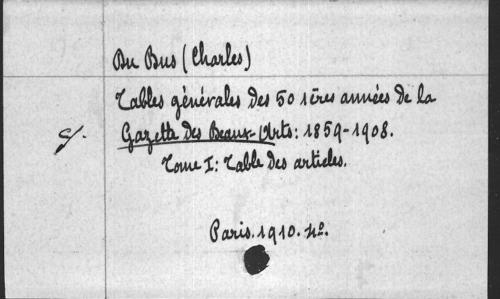 Du Bus (Charles)
Tables générales des 50 1ères années de la
Gazette des Beaux-Arts: 1859-1908.
Tome I: Table des articles.
Paris. 1910. 4º.